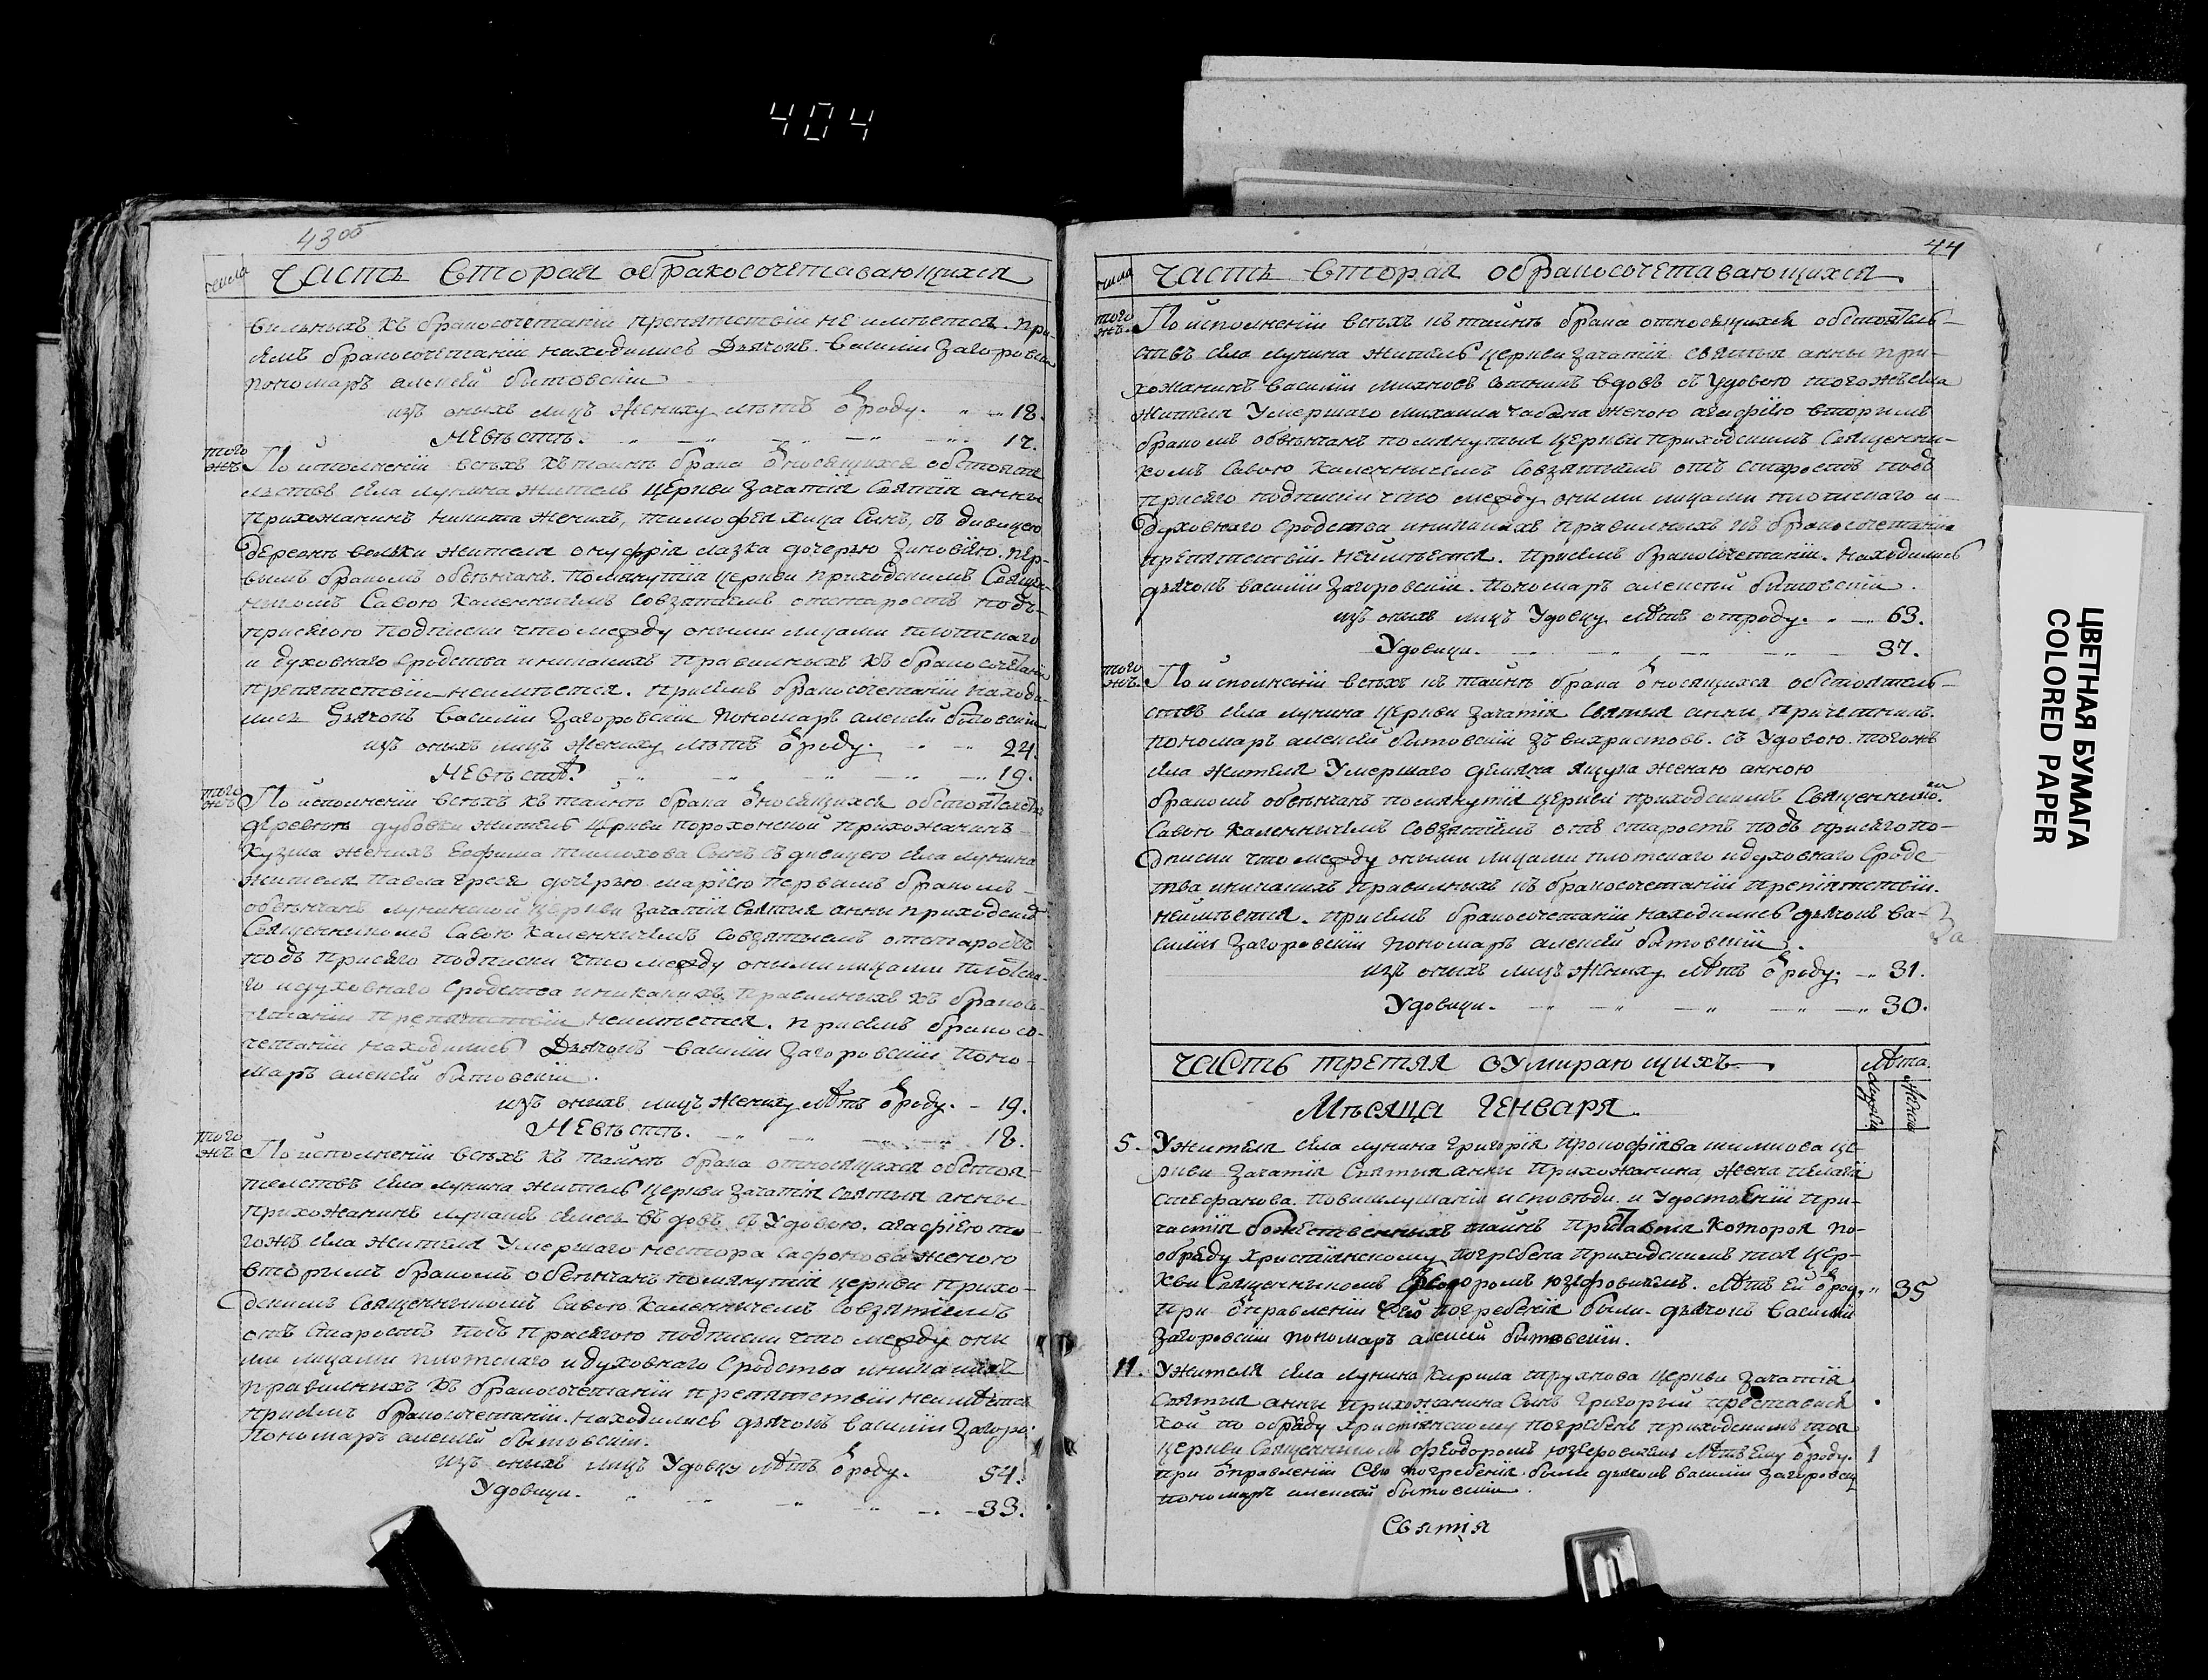 404
43об
числа
Часть вторая обракосочетавающихся
вильныхъ къ бракосочетанію препятствіи не имѣется. при
семъ бракосочетаніи находились Дьячокъ василіи Загоровскіи
пономаръ алексѣй битовскіи
изъ оныхъ лицъ Жениху лѣтъ ѿроду. 18.
Невѣстѣ. 17.
того жъ
По исполненіи всѣхъ къ таинѣ брака ѿносящихся обстояте
лствъ села лунина житель Церкви Зачатія Святія анны
прихожанинъ никита женихъ, тимофея хица Сынъ, съ дивицею
деревнѣ вольки жителя онуфрія лазка дочерью Зиновіею. пер-
вымъ бракомъ обвѣнчанъ. помянутія Церкви приходскимъ Священ-
никомъ Савою Каленничемъ совзятіемъ отстаростъ подъ-
присягою подписки что между оними лицами плотскаго
и духовнаго сродства иникакихъ правилнихъ къ бракосочетанію
препятствіи неимѣется. присемъ бракосочетаніи находи-
лись Дьячокъ василіи Загоровскіи пономаръ алексѣй битовскіи
изъ оныхъ лицъ Жениху лѣтъ ѿроду. 24.
Невѣстѣ. 19.
того жъ
По исполненіи всѣхъ къ таинѣ брака ѿносящихся обстоятелствъ
деревнѣ дубовки житель Церкви порохонской прихожанинъ
Кузма женихъ Сынъ съ дивицею села лунина
жителя павла греся дочерью маріею первимъ бракомъ
обвѣнчанъ лунинской Церкви Зачатія Святія анни приходскимъ
Священникомъ Савою Каленничемъ совзятіемъ отстаростъ
подъ присяго подписки что между онимилицами плотска-
го идуховнаго сродства иникакихъ правилнихъ къ бракосо-
четанію препятствіи неимѣется. присемъ бракосо-
четаніи находились Дьячокъ василіи Загоровскіи поно-
маръ алексѣй битовскіи.
изъ онихъ лицъ Жениху лѣтъ ѿроду. 19.
Невѣстѣ. 18.
того жъ
По исполненіи всѣхъ къ таинѣ брака относящихся обстоя-
телствъ села лунина житель Церкви Зачатія Святія анни
прихожанинъ вдовъ съ Удовою. агафіею то-
гожъ села жителя Умершаго нестора Сафонова женою
вторимъ бракомъ обвѣнчанъ помянутія Церкви прихо-
дскимъ Священникомъ Савою Каленничемъ совзятіемъ
отъ старостъ подъ присягою подписки что между они
ми лицами плотскаго идуховнаго сродства иникакихъ
правилнихъ къ бракосочетанію препятствіи неимѣется
присемъ бракосочетаніи. находились дьячокъ василіи Загоро:
пономаръ алексѣй битовскіи.
изъ онихъ лицъ Удовцу лѣтъ ѿроду. 54.
Удовици. 33.
44
числа
Часть вторая обракосочетавающихся
того жъ.
По исполненіи всѣхъ къ таинѣ брака относящихся обстоятель-
ствъ села лунина житель Церкви Зачатія святія анни при-
хожанинъ василіи вдовъ съ Удовою тогожъ села
жителя Умершаго михаила чабана женою агафіею вторимъ
бракомъ обвѣнчанъ помянутія Церкви приходскимъ Священни-
комъ Савою Каленничемъ совзятіемъ отъ старостъ подъ
присяго подписки что между оними лицами плотскаго и-
духовнаго сродства иникакихъ правилнихъ къ бракосочетанію
препятствіи неимѣется. присемъ бракосочетаніи. находились
дьячокъ василіи Загоровскіи. пономаръ алексѣй битовскіи.
изъ онихъ лицъ Удовцу лѣтъ отроду. 63.
Удовици. 37.
того жъ.
По исполненіи всѣхъ къ таинѣ брака ѿносящихся обстоятель-
ствъ села лунина Церкви Зачатія Святія анни причетникъ.
пономаръ алексѣй битовскіи съ Удовою. тогожъ
села жителя Умершаго демяна ящука женою анною
бракомъ обвѣнчанъ помянутія Церкви приходскимъ Священнико.
Савою Каленничемъ совзятіемъ отъ старостъ подъ присяго по-
дписки что между оними лицами плотскаго идуховнаго сродс-
тва иникакихъ правилнихъ къ бракосочетанію препіятствіи.
неимѣется. присемъ бракосочетаніи находились дьячокъ ва-
силіи Загоровскіи пономаръ алексѣй битовскіи.
изъ онихъ лицъ Жениху лѣтъ ѿроду. 31.
Удовици. 30.
Часть третяя оУмирающихъ
лѣта.
Мѣсяца Генваря.
5. Ужителя села лунина григорія прокофіева це-
ркви Зачатія Святія анни прихожанина жена пелагія
стефанова. исповѣди и Удостоеніи при-
частія божественныхъ таинъ преставися которая по-
обряду христіянскому погребена приходскимъ тоя Цер-
кви Священникомъ феодоромъ юзефовичемъ. лѣтъ Ей ѿрод. 35
при ѿправленіи Сего погребенія были дьячокъ василіи
Загоровскіи пономаръ алексѣй битовскіи.
11. Ужителя села лунина Кирила трухнова Церкви Зачатія
Святія анни прихожанина Сынъ григорій преставися
кой по обряду Христіянскому погребенъ приходскимъ тоя
Церкви Священникомъ феодоромъ юзефовичемъ лѣтъ Ему ѿроду. 1
при ѿправленіи Сего погребенія были дьячокъ василіи Загоровскіи
пономаръ алексѣй битовскіи.
Святія
ЦВЕТНАЯ БУМАГА
COLORED PAPER